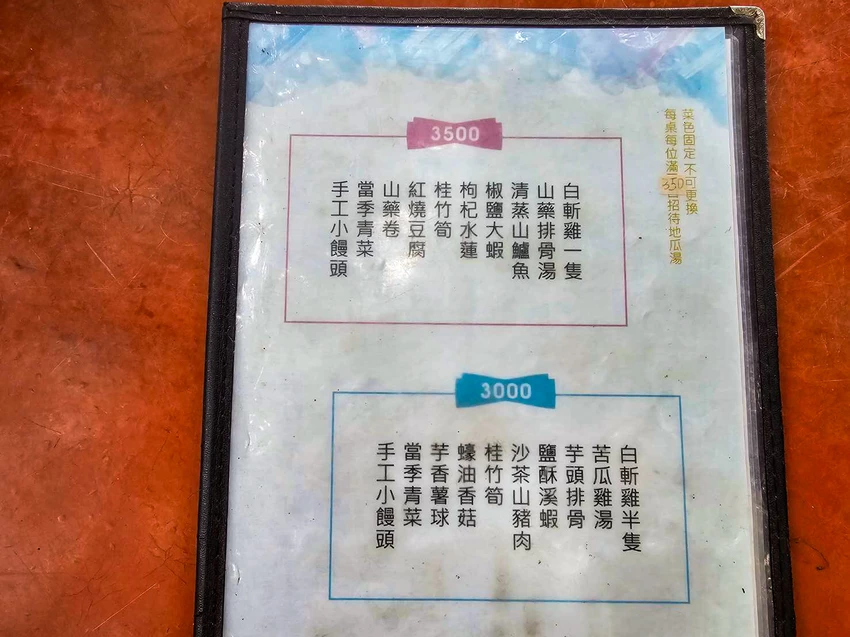 菜色固定 不可更換
每桌每位滿350招待地瓜湯
3500
白斬雞一隻
山藥排骨湯
清蒸山鱸魚
椒鹽大蝦
枸杞水蓮
桂竹筍
紅燒豆腐
山藥卷
當季青菜
手工小饅頭
3000
白斬雞半隻
苦瓜雞湯
芋頭排骨
鹽酥溪蝦
沙茶山豬肉
桂竹筍
蠔油香菇
芋香薯球
當季青菜
手工小饅頭